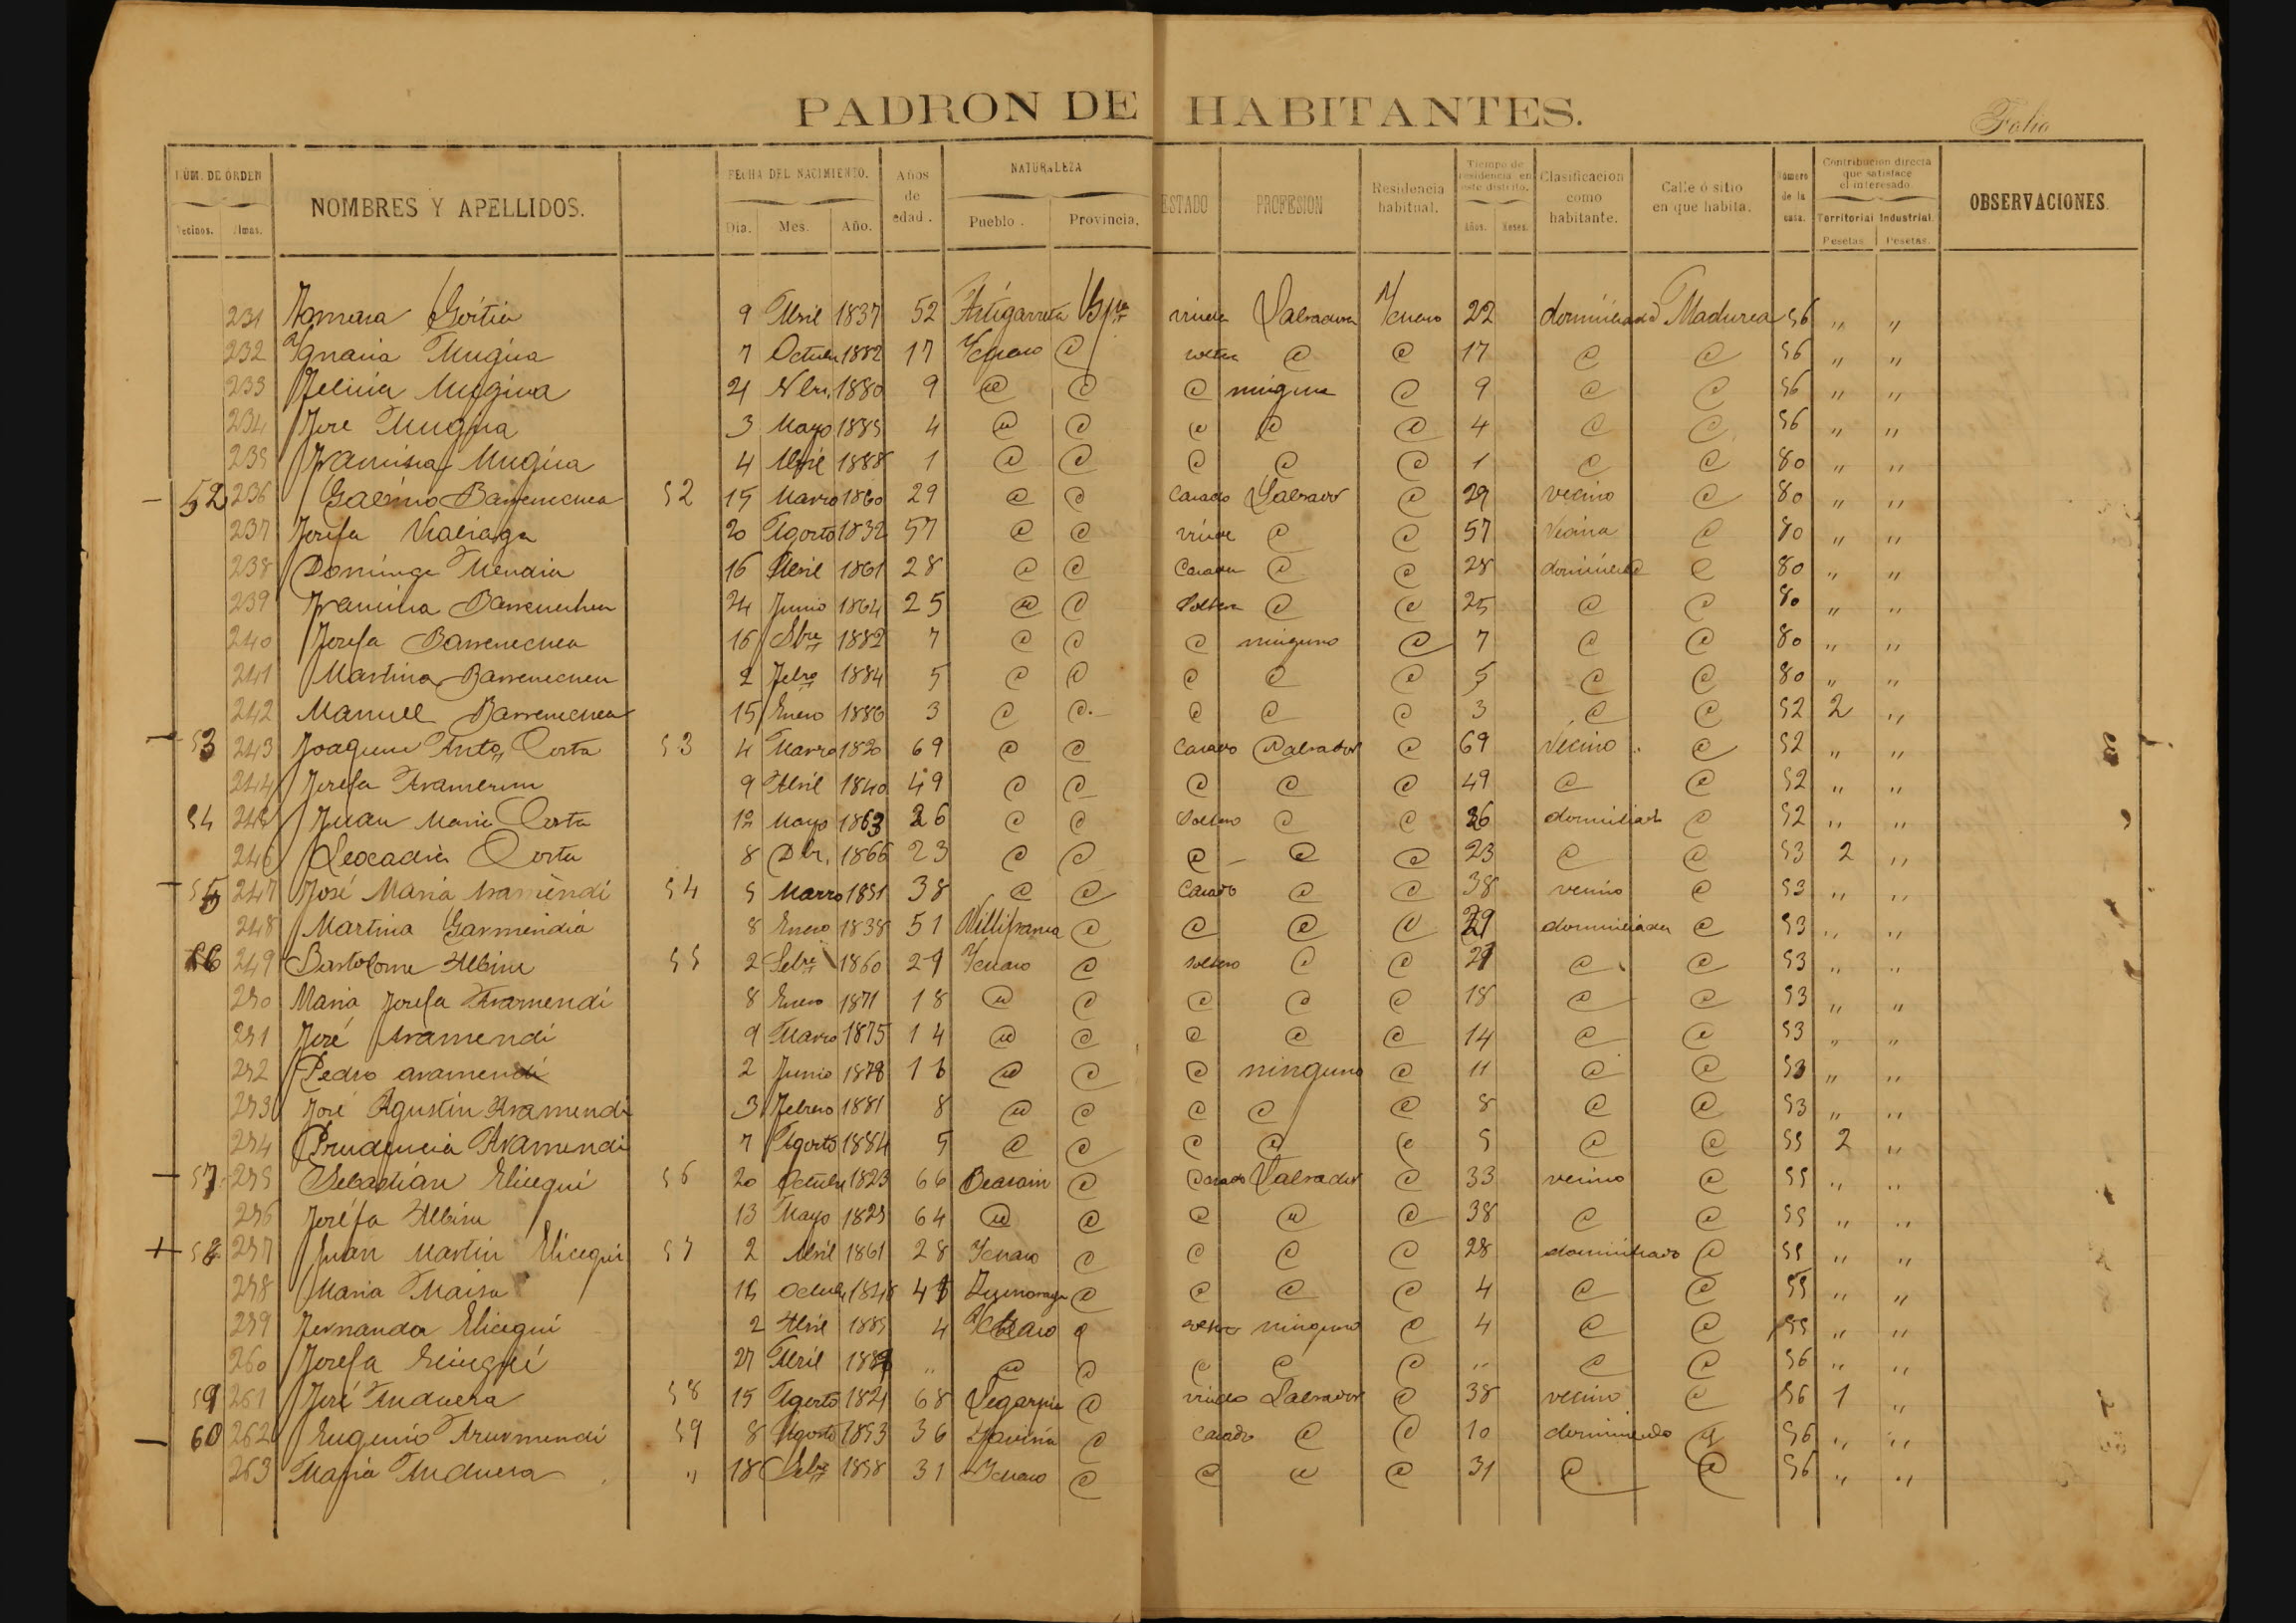 PADRON DE HABITANTES.
Folio
NÚM. DE ORDEN Vecinos. Almas. NOMBRES Y APELLIDOS. FECHA DEL NACIMIENTO. Dia. Mes. Año. Años de edad. NATURALEZA Pueblo. Provincia. ESTADO PROFESION Residencia habitual. Tiempo de residencia en este distrito. Años. Meses. Clasificacion como habitante. Calle ó sitio en que habita. Número de la casa. Contribucion directa que satisface el interesado. Territorial Industrial. Pesetas Pesetas. OBSERVACIONES.
231 9 Abril 1837 52 viuda Labradora 22 Madurea 56 " "
232 Ignacia Mugica 7 Octubre 1882 17 @ soltera @ @ 17 @ @ 56 " "
233 Felicia Mugica 21 Nbre. 1880 9 @ @ @ ninguna @ 9 @ @ 56 " "
234 Jose Mugica 3 Mayo 1885 4 @ @ @ @ @ 4 @ @ 56 " "
235 Francisca Mugica 4 Abril 1888 1 @ @ @ @ @ 1 @ @ 80 " "
52 236 Galo Barrenechea 52 15 Marzo 1860 29 @ @ Casado Labrador @ 29 vecino @ 80 " "
237 Josefa 20 Agosto 1832 57 @ @ viuda @ @ 57 Vecina @ 80 " "
238 Dominga Mendia 16 Abril 1861 28 @ @ Casada @ @ 28 @ 80 " "
239 Francisca Barrenechea 24 Junio 1864 25 @ @ Soltera @ @ 25 @ @ 80 " "
240 Josefa Barrenechea 16 Sbre 1882 7 @ @ @ ninguno @ 7 @ @ 80 " "
241 Martina Barrenechea 2 Febro 1884 5 @ @ @ @ @ 5 @ @ 80 " "
242 Manuel Barrenechea 15 Enero 1886 3 @ @ @ @ @ 3 @ @ 52 2 "
53 243 Joaquin Anto Costa 53 4 Marzo 1820 69 @ @ Casado Labrador @ 69 Vecino @ 52 " "
244 Josefa 9 Abril 1840 49 @ @ @ @ @ 49 @ @ 52 " "
54 245 Juan Maria Costa 12 Mayo 1863 26 @ @ Soltero @ @ 26 domiciliado @ 52 " "
246 Leocadia Costa 8 Dbr. 1866 23 @ @ @ @ @ 23 @ @ 53 2 "
55 247 José Maria Aramendi 54 5 Marzo 1851 38 @ @ Casado @ @ 38 vecino @ 53 " "
248 Martina Garmendia 8 Enero 1838 51 Villifranca @ @ @ @ domiciliada @ 53 " "
56 249 Bartolome Albisu 55 2 Sebre 1860 29 @ soltero @ @ 29 @ @ 53 " "
250 Maria Josefa Aramendi 8 Enero 1871 18 @ @ @ @ @ 18 @ @ 53 " "
251 José Aramendi 9 Marzo 1875 14 @ @ @ @ @ 14 @ @ 53 " "
252 Pedro aramendi 2 Junio 1878 11 @ @ @ ninguno @ 11 @ @ 53 " "
253 José Agustin Aramendi 3 Febrero 1881 8 @ @ @ @ @ 8 @ @ 53 " "
254 Prudencia Aramendi 7 Agosto 1884 5 @ @ @ @ @ 5 @ @ 55 2 "
57 255 Sebastián Elicegui 56 20 Octubre 1823 66 Beasain @ Casado Labrador @ 33 vecino @ 55 " "
256 Joséfa Albisu 13 Mayo 1825 64 @ @ @ @ @ 38 @ @ 55 " "
58 257 Juan Martin Elicegui 57 2 Abril 1861 28 @ @ @ @ 28 domiciliado @ 55 " "
258 Maria Maisu Octubre @ @ @ @ 4 @ @ 55 " "
259 Fernanda Elicegui 2 Abril 1885 4 @ ninguno @ 4 @ @ 55 " "
260 Josefa Elicegui 27 Abril 1889 " @ @ @ @ @ " @ @ 56 " "
59 261 José Anduera 58 15 Agosto 1821 68 Segarpia @ viudo Labrador @ 38 vecino @ 56 1 "
60 262 Eugenio 59 8 Agosto 1853 36 @ casado @ @ 10 @ 56 " "
263 Maria Anduera " 18 Sebre 1858 31 @ @ @ @ 31 @ @ 56 " "